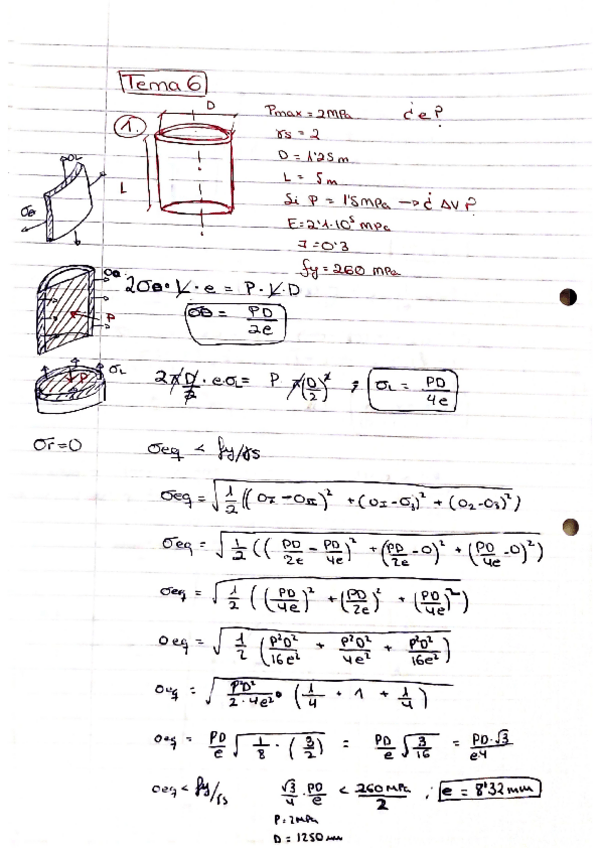 Tema 6
1.
D
L
Pmax = 2MPa ¿e?
γs = 2
D = 1'25 m
L = 5m
Si P = 1'5MPa → ¿ΔV?
E = 2'1·10⁵ MPa
ν = 0'3
fy = 260 MPa
σL
σθ
σθ
P
2σθ · L · e = P · L · D
σθ = PD/2e
σL
P
2π D/2 · e σL = P π (D/2)² ; σL = PD/4e
σr = 0
σeq < fy/γs
σeq = √(1/2 ((σI - σII)² + (σI - σ3)² + (σ2 - σ3)²))
σeq = √(1/2 ((PD/2e - PD/4e)² + (PD/2e - 0)² + (PD/4e - 0)²))
σeq = √(1/2 ((PD/4e)² + (PD/2e)² + (PD/4e)²))
σeq = √(1/2 (P²D²/16e² + P²D²/4e² + P²D²/16e²))
σeq = √(P²D²/2·4e² · (1/4 + 1 + 1/4))
σeq = PD/e √(1/8 · (3/2)) = PD/e √(3/16) = PD·√3/e4
σeq < fy/γs √3/4 · PD/e < 260MPa/2 ; e = 8'32 mm
P = 2MPa
D = 1250 mm